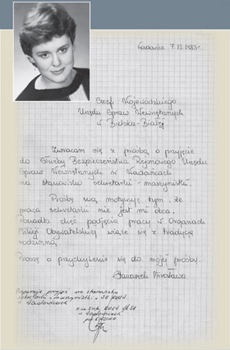 Wadowice 7.12.1983r.
Szef Wojewódzkiego
Urzędu Spraw Wewnętrznych
w Bielsku-Białej
Zwracam się z prośbą o przyjęcie
do Służby Bezpieczeństwa Rejonowego Urzędu
Spraw Wewnętrznych w Wadowicach
na stanowisko sekretarki - maszynistki.
Prośbę swą motywuję tym, że
praca sekretarki nie jest mi obca,
ponadto chęć podjęcia pracy w Organach
Milicji Obywatelskiej wiąże się z tradycją
rodzinną.
Proszę o przychylenie się do mojej prośby.
sekretarki - maszynistki
w Wadowicach